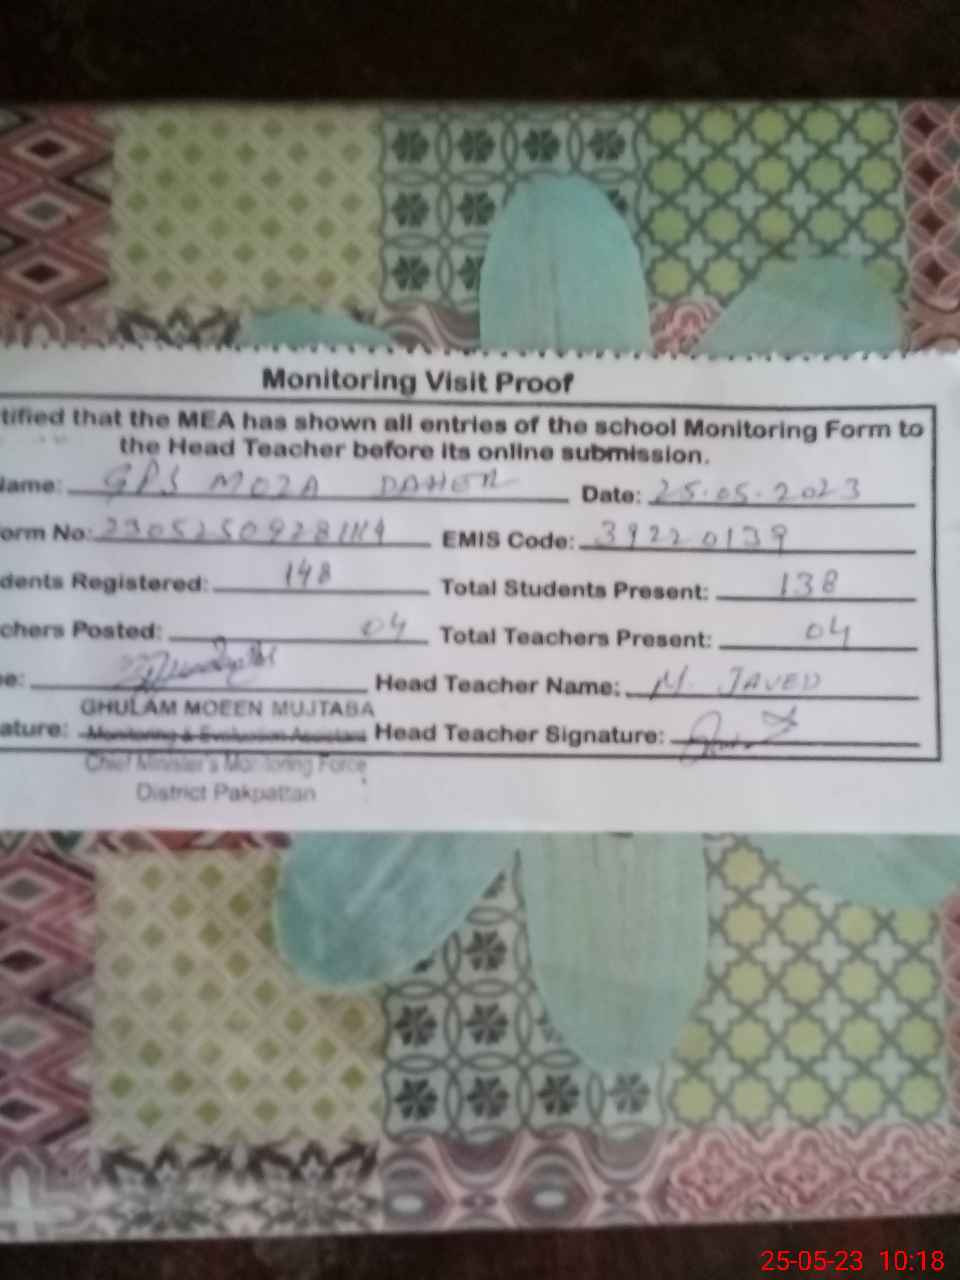 Monitoring Visit Proof
tified that the MEA has shown all entries of the school Monitoring Form to
the Head Teacher before its online submission.
Name: GPS MOZA DAHER Date: 25.05.2023
orm No: EMIS Code: 39220139
dents Registered: 148 Total Students Present: 138
chers Posted: 04 Total Teachers Present: 04
e: Head Teacher Name: M. JAVED
GHULAM MOEEN MUJTABA
ature: Monitoring & Evaluation Assistant Head Teacher Signature:
Chief Minister's Monitoring Force
District Pakpattan
25-05-23 10:18